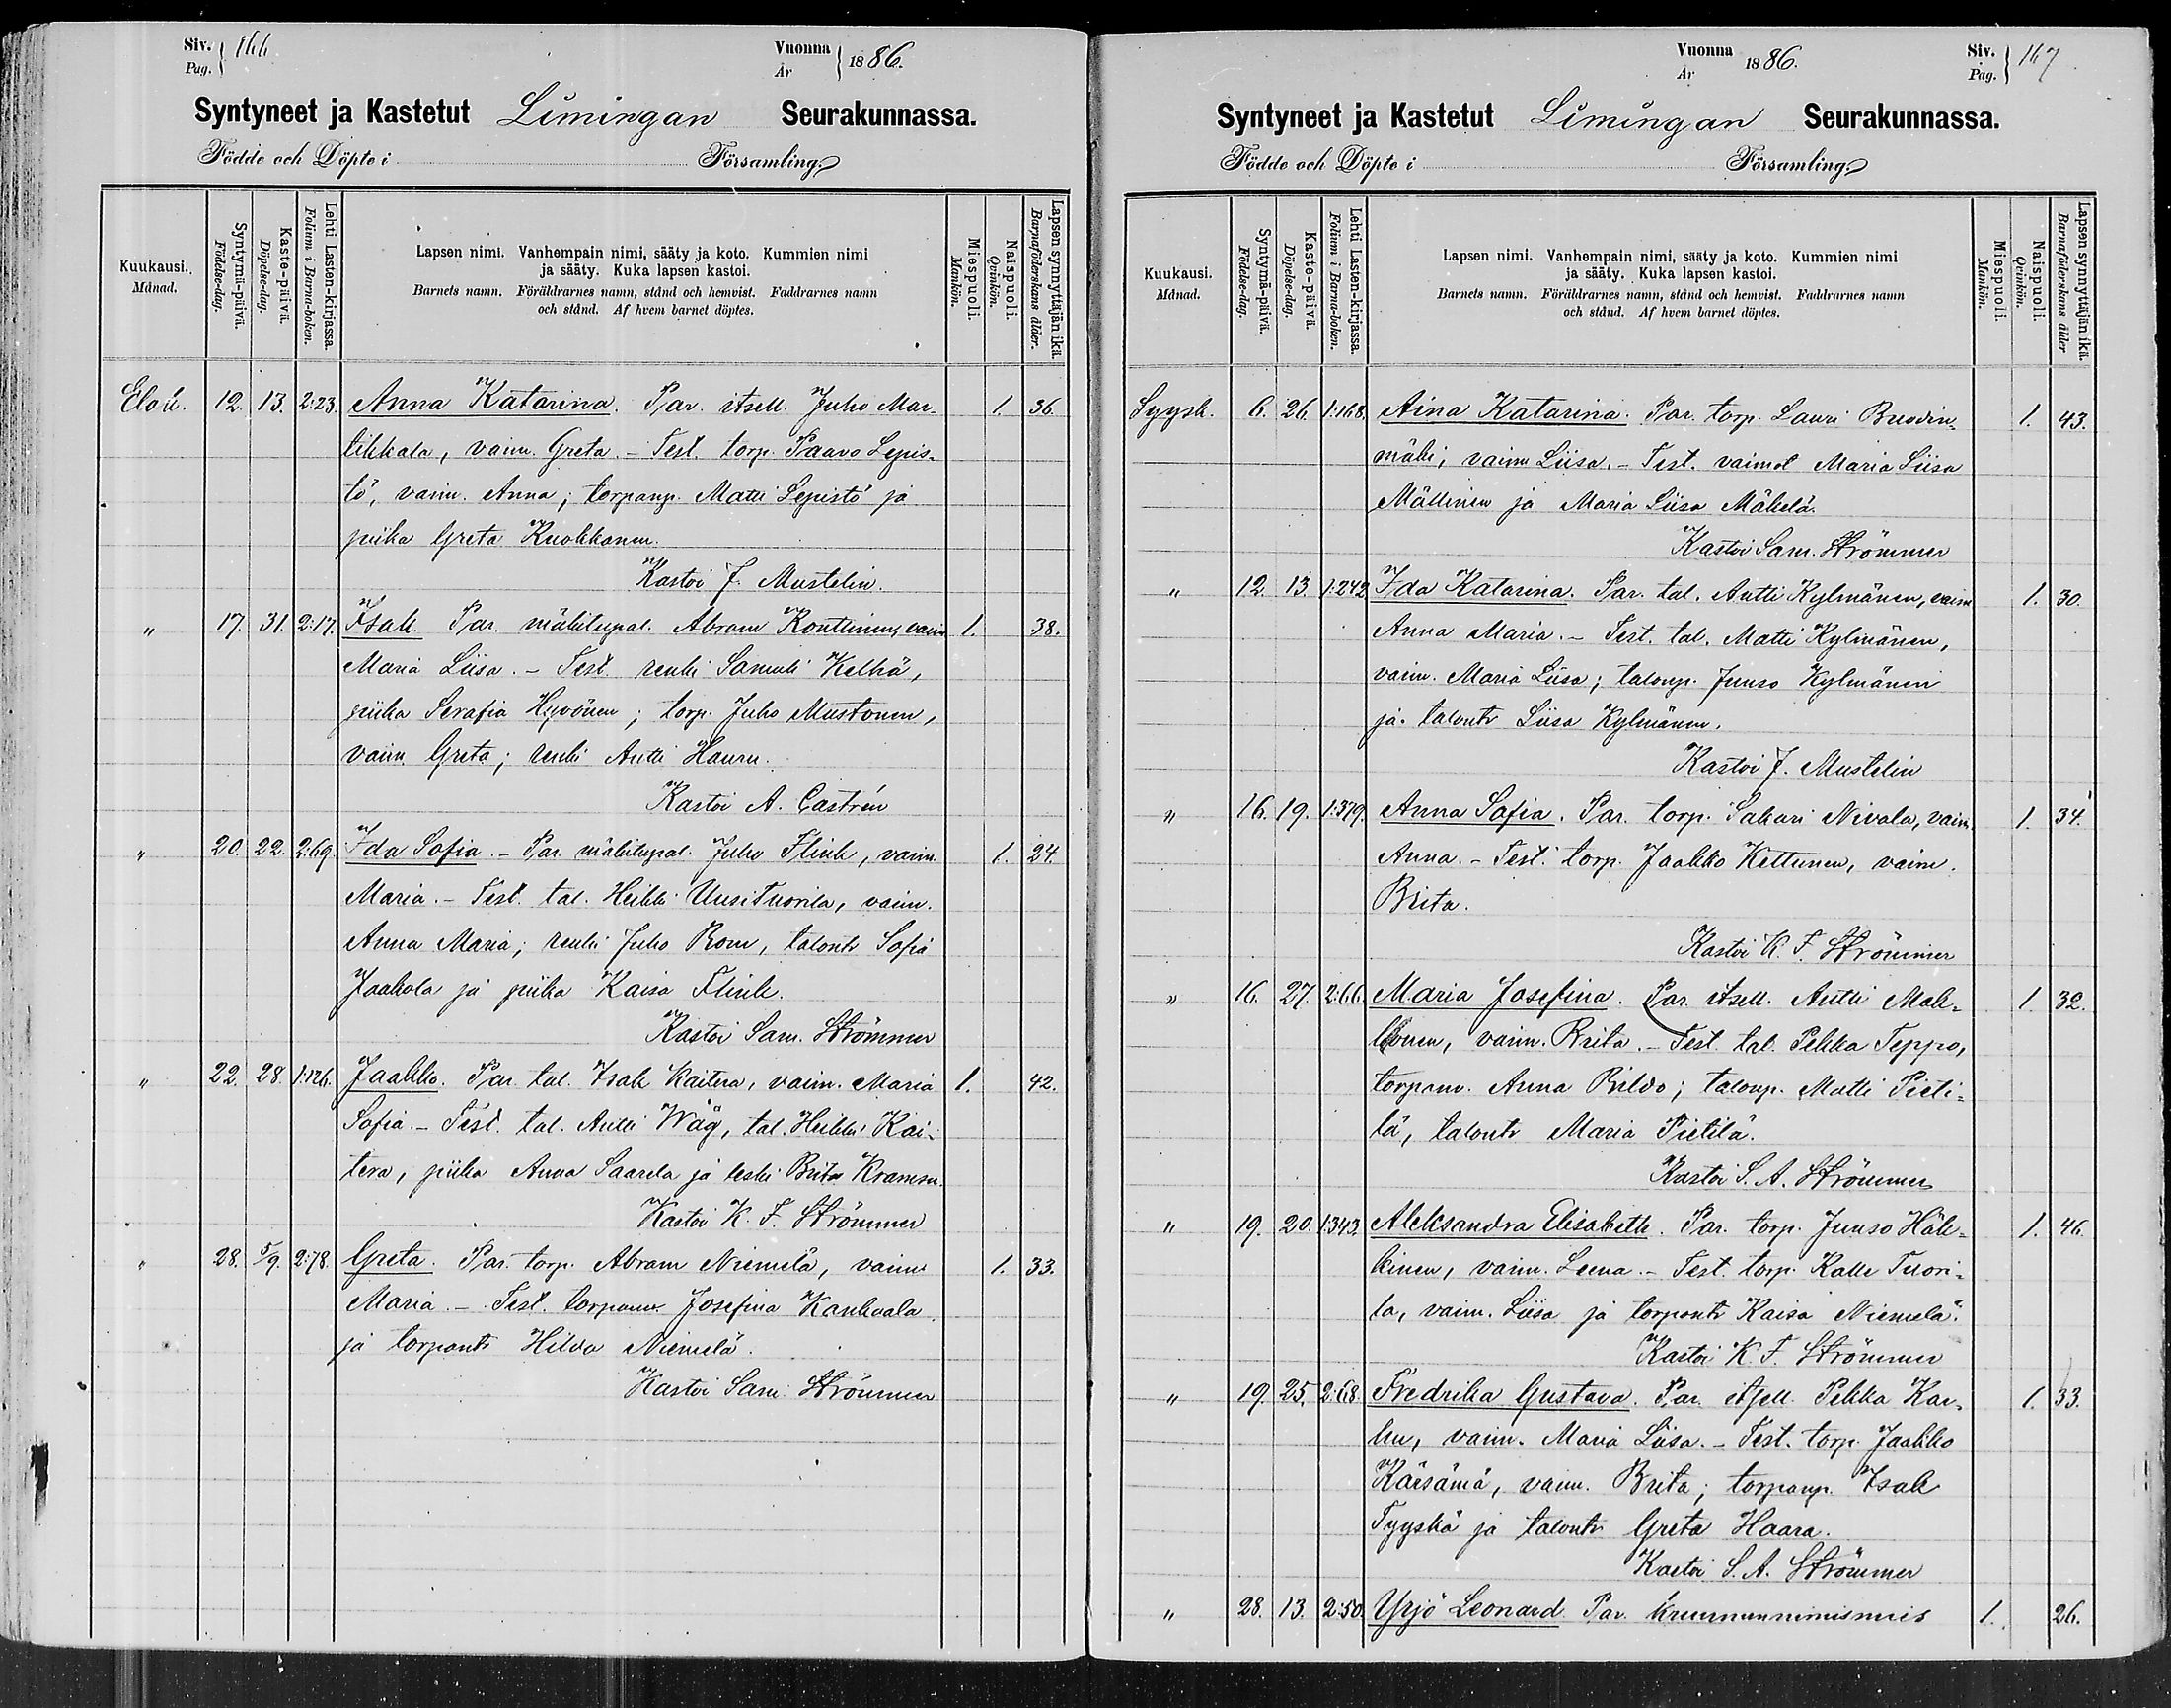 Siv. 166
Pag.
Vuonna 1886.
År
Syntyneet ja Kastetut Limingan Seurakunnassa.
Födde och Döpte i Församling.
Kuukausi.
Månad.
Syntymä-päivä.
Födelse-dag.
Kaste-päivä.
Döpelse-dag.
Lehti Lasten-kirjassa.
Folium i Barna-boken.
Lapsen nimi. Vanhempain nimi, sääty ja koto. Kummien nimi
ja sääty. Kuka lapsen kastoi.
Barnets namn. Föräldrarnes namn, stånd och hemvist. Faddrarnes namn
och stånd. Af hvem barnet döptes.
Miespuoli.
Mankön.
Naispuoli.
Qvinkön.
Lapsen synnyttäjän ikä.
Barnaföderskans ålder.
Elok. 12. 13. 2:23. Anna Katarina. Par. itsell. Juho Mar- 1. 36.
tikkala, vaim. Greta. - Test. torp. Paavo Lepis-
tö, vaim. Anna; torpanp. Matti Lepistö ja
piika Greta Kuokkanen.
Kastoi J. Mustelin.
" 17. 31. 2:17. Isak. Par. mäkitupal. Abram Konttinen, vaim. 1. 38.
Maria Liisa. - Test. renki Samuli Kelhä,
piika Serafia Hyvönen; torp. Juho Mustonen,
vaim. Greta; renki Antti Hauru.
Kastoi A. Castrén
" 20. 22. 2:69. Ida Sofia. - Par. mäkitupal. Juho Flink, vaim. 1. 24.
Maria. - Test. tal. Heikki UusiTuorila, vaim.
Anna Maria; renki Juho Rom, talontr Sofia
Jaakola ja piika Kaisa Flink.
Kastoi Sam. Strömmer
" 22. 28. 1:126. Jaakko. Par. tal. Isak Kaitera, vaim. Maria 1. 42.
Sofia. - Test. tal. Antti Wäg, tal. Heikki Kai-
tera, piika Anna Saarela ja leski Brita Kramsu.
Kastoi K. F. Strömmer
" 28. 5/9. 2:78. Greta. Par. torp. Abram Niemelä, vaim. 1. 33.
Maria. - Test. torpanv. Josefina Kankaala
ja torpantr Hilda Niemelä.
Kastoi Sam. Strömmer
Vuonna 1886.
År
Siv. 167
Pag.
Syntyneet ja Kastetut Limingan Seurakunnassa.
Födde och Döpte i Församling.
Kuukausi.
Månad.
Syntymä-päivä.
Födelse-dag.
Kaste-päivä.
Döpelse-dag.
Lehti Lasten-kirjassa.
Folium i Barna-boken.
Lapsen nimi. Vanhempain nimi, sääty ja koto. Kummien nimi
ja sääty. Kuka lapsen kastoi.
Barnets namn. Föräldrarnes namn, stånd och hemvist. Faddrarnes namn
och stånd. Af hvem barnet döptes.
Miespuoli.
Mankön.
Naispuoli.
Qvinkön.
Lapsen synnyttäjän ikä.
Barnaföderskans ålder
Syysk. 6. 26. 1:168. Aina Katarina. Par. torp. Lauri Ruodin- 1. 43.
mäki, vaim Liisa. - Test. vaimot Maria Liisa
Mällinen ja Maria Liisa Mäkelä.
Kastoi Sam. Strömmer
" 12. 13. 1:242 Ida Katarina. Par. tal. Antti Kylmänen, vaim 1. 30.
Anna Maria. - Test. tal. Matti Kylmänen,
vaim. Maria Liisa; talonp. Juuso Kylmänen
ja talontr Liisa Kylmänen.
Kastoi J. Mustelin
" 16. 19. 1:379. Anna Sofia. Par. torp. Sakari Nivala, vaim. 1. 34.
Anna. - Test. torp. Jaakko Kettunen, vaim.
Brita.
Kastoi K. F. Strömmer
" 16. 27. 2:66. Maria Josefina. Par. itsell. Antti Mak- 1. 32.
konen, vaim. Brita. - Test. tal. Pekka Teppo,
torpanv. Anna Rildo; talonp. Matti Pieti-
lä, talontr Maria Pietilä.
Kastoi S. A. Strömmer
" 19. 20. 1:343. Aleksandra Elisabeth. Par. torp. Juuso Häk- 1. 46.
kinen, vaim. Leena. - Test. torp. Kalle Tuori-
la, vaim. Liisa ja torpantr Kaisa Niemelä.
Kastoi K. F. Strömmer
" 19. 25. 2:68. Fredrika Gustava. Par. itsell. Pekka Kar- 1. 33.
hu, vaim. Maria Liisa. - Test. torp. Jaakko
Kärsämä, vaim. Brita; torpanp. Isak
Tyyskä ja talontr Greta Haara.
Kastoi S. A. Strömmer
" 28. 13. 2:50. Yrjö Leonard Par. kruununnimismies 1. 26.